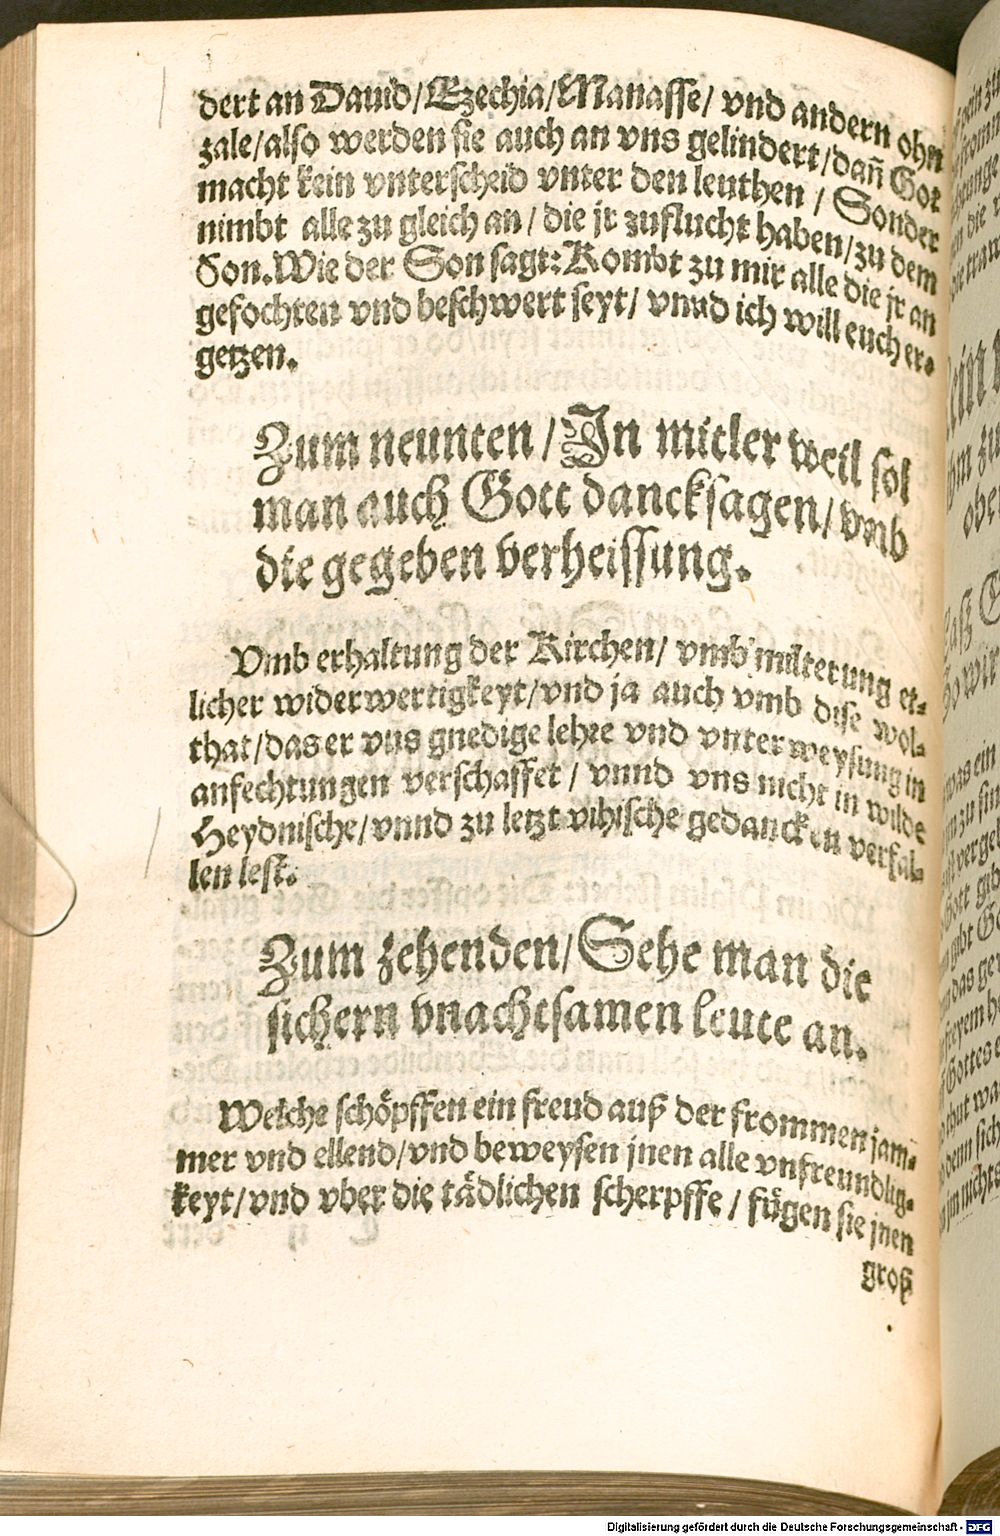 dert an Dauid/Ezechia/Manasse/ vnd andern ohn
zale/also werden sie auch an vns gelindert/dañ Got
macht kein vnterscheid vnter den leuthen / Sonder
nimbt alle zu gleich an/ die jr zuflucht haben/zu dem
Son. Wie der Son sagt: Kombt zu mir alle die jr an
gefochten vnd beschwert seyt/ vnnd ich will euch er-
getzen.
Zum neunten / In mitler weil sol
man auch Gott dancksagen/ vmb
die gegeben verheissung.
Vmb erhaltung der Kirchen/ vmb milterung et-
licher widerwertigkeyt/vnd ja auch vmb dise wol-
that/das er vns gnedige lehre vnd vnterweysung in
anfechtungen verschaffet / vnnd vns nicht in wilde
Heydnische/vnnd zu letzt vihische gedancken verfal-
len lest.
Zum zehenden/Sehe man die
sichern vnachtsamen leute an.
Welche schöpffen ein freud auß der frommen jam-
mer vnd ellend/vnd beweysen jnen alle vnfreundlig-
keyt/vnd vber die tädlichen scherpffe / fügen sie jnen
groß
Digitalisierung gefördert durch die Deutsche Forschungsgemeinschaft - DFG